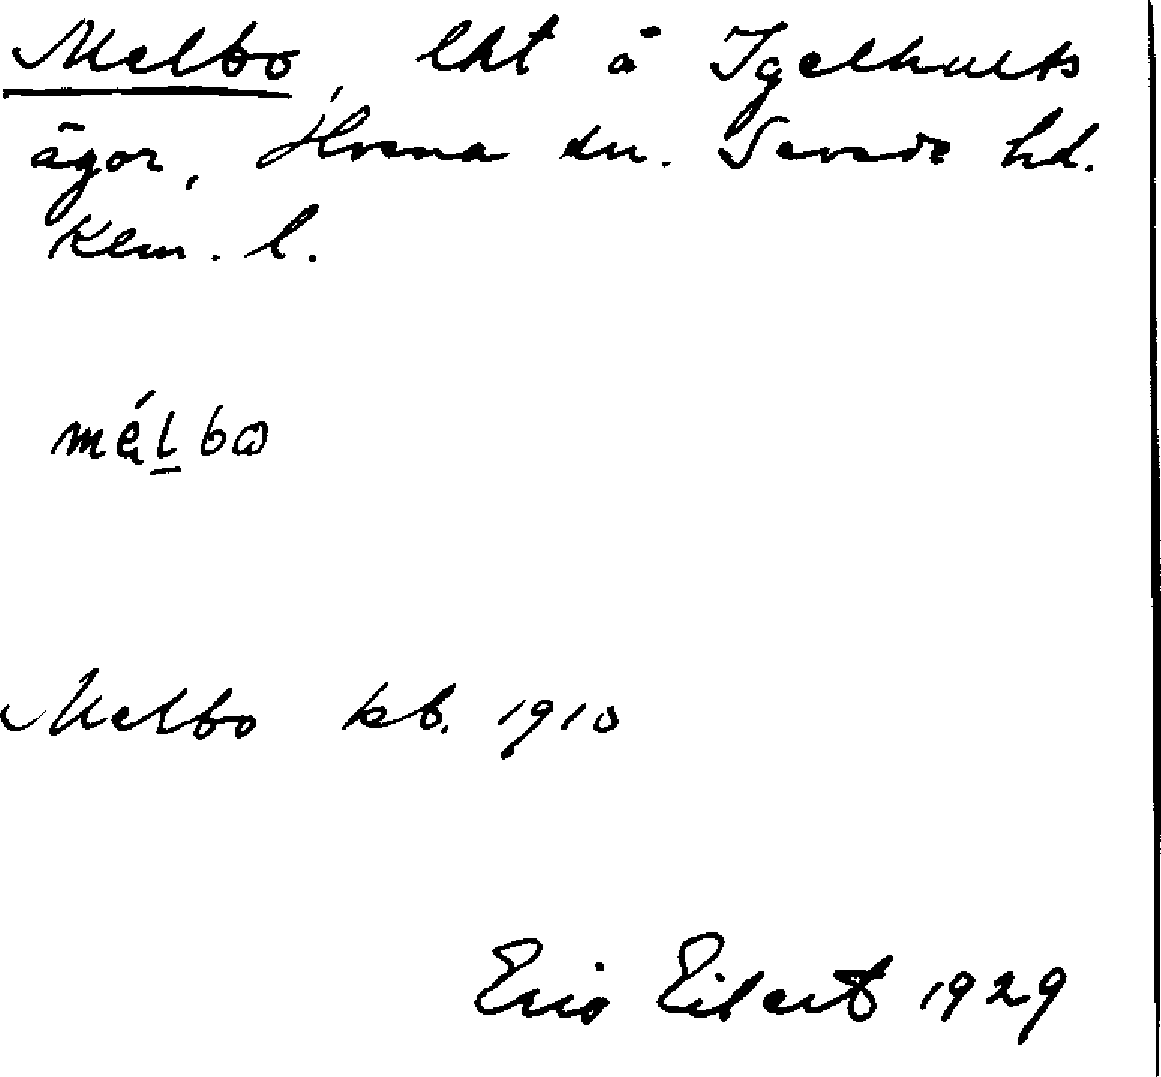 Melbo, lht å Igelhults
ägor, Hvena sn. Sevede hd.
Klm. l.
mélbo
Melbo kb. 1910
Eric Eilert 1929